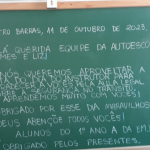 TRO BARRAS, 11 DE OUTUBRO DE 2023.
LÁ QUERIDA EQUIPE DA AUTOESCO
MES E LIZ!
NÓS QUEREMOS APROVEITAR A
PARA
AULA LEGAL
A SEGURANÇA NO TRÂNSITO
APRENDEMOS MUITO COM VOCÊS!
BRIGADO POR ESSE DIA MARAVILHOS
DEUS ABENÇOE TODOS VOCÊS!
ALUNOS DO 1º ANO A DA EM
OBRIGADO PELOS PRESENTES.